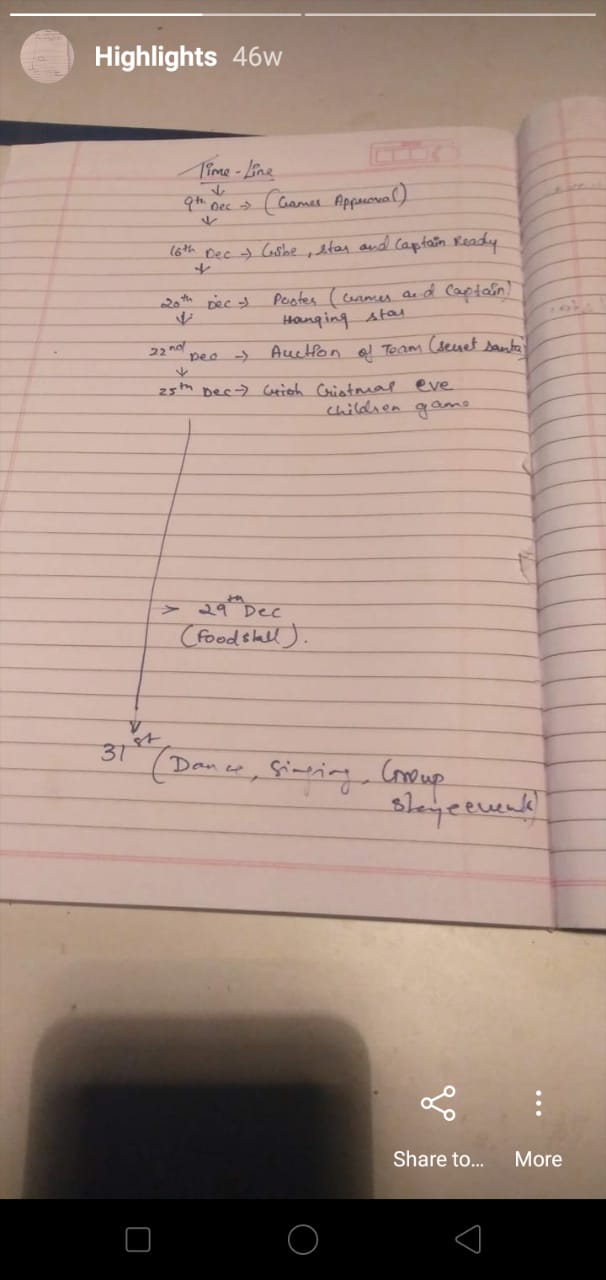 Highlights 46w
Time-Line
9th Dec → (Games Approval)
16th Dec → , star and Captain Ready
20th Dec → Poster (Games and Captain)
Hanging star
22nd Dec → Auction of Team (secret santa)
25th Dec → Cristmas eve
children game
> 29th Dec
(Food stall).
31st (Dance, Singing, Group
Share to... More